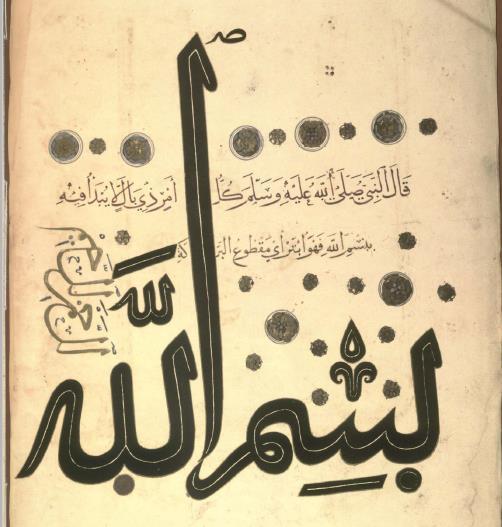 قَالَ النَّبِيُّ صَلَّى اللَّهُ عَلَيْهِ وَسَلَّمَ كُلُّ أَمْرٍ ذِي بَالٍ لَا يُبْدَأُ فِيهِ
بِسْمِ اللَّهِ فَهُوَ أَبْتَرُ أَيْ مَقْطُوعُ الْبَرَكَةِ
بِسْمِ اللَّهِ
الرحمن الرحيم